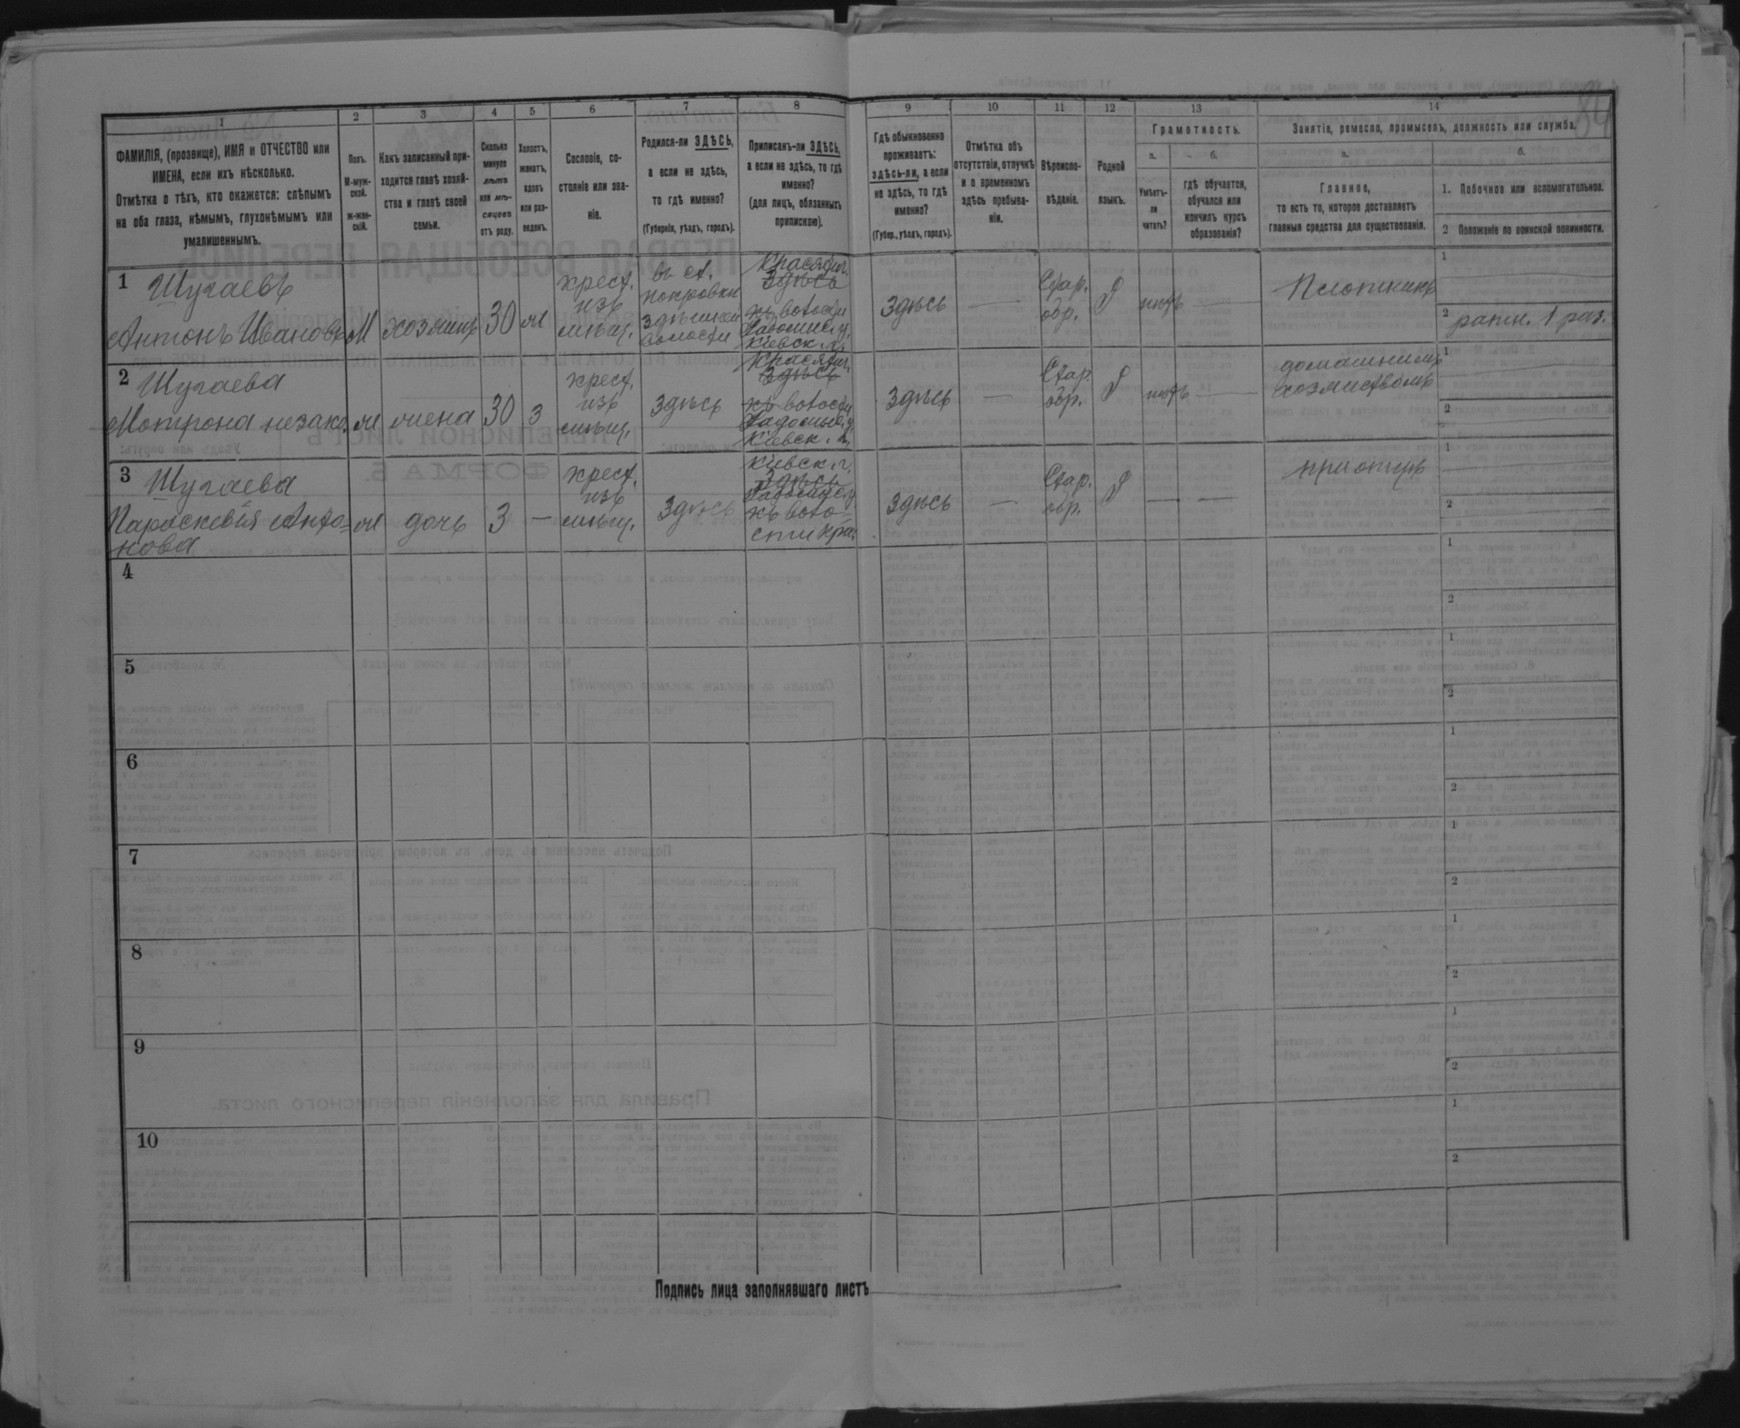 1
2
3
4
5
6
7
8
9
10
11
12
13
14
84
ФАМИЛІЯ, (прозвище), ИМЯ и ОТЧЕСТВО или
ИМЕНА, если ихъ нѣсколько.
Отмѣтка о тѣхъ, кто окажется: слѣпымъ
на оба глаза, нѣмымъ, глухонѣмымъ или
умалишеннымъ.
Полъ.
М-муж-
ской.
Ж-жен-
скій.
Какъ записанный при-
ходится главѣ хозяй-
ства и главѣ своей
семьи.
Сколько
минуло
лѣтъ
или мѣ-
сяцевъ
отъ роду.
Холостъ,
женатъ,
вдовъ
или раз-
веденъ.
Сословіе, со-
стояніе или зва-
ніе.
Родился-ли ЗДѢСЬ,
а если не здѣсь,
то гдѣ именно?
(Губернія, уѣздъ, городъ).
Приписанъ-ли ЗДѢСЬ,
а если не здѣсь, то гдѣ
именно?
(для лицъ, обязанныхъ
припискою).
Гдѣ обыкновенно
проживаетъ:
здѣсь-ли, а если
не здѣсь, то гдѣ
именно?
(Губер., уѣздъ, городъ).
Отмѣтка объ
отсутствіи, отлучкѣ
и о временномъ
здѣсь пребыва-
ніи.
Вѣроиспо-
вѣданіе.
Родной
языкъ.
Грамотность.
а.
б.
Умѣетъ-
ли
читать?
гдѣ обучается,
обучался или
кончилъ курсъ
образованія?
Занятія, ремесло, промыселъ, должность или служба.
а.
б.
Главное,
то есть то, которое доставляетъ
главныя средства для существованія.
1. Побочное или вспомогательное.
2 Положеніе по воинской повинности.
1 Шугаевъ
Антонъ Ивановъ
М
хозяинъ
30
ж
крест.
изъ
мѣщ.
въ сл.
покровки
здѣшней
волости
здѣсь
къ волости
Кіевск. г.
здѣсь
—
Стар.
обр.
нѣтъ
—
Плотникъ
1
2 ратн. 1 раз.
2 Шугаева
Мотрона незак.
ж
жена
30
з
крест.
изъ
мѣщ.
здѣсь
здѣсь
къ волости
Кіевск. г.
здѣсь
—
Стар.
обр.
нѣтъ
—
домашнимъ
хозяйствомъ
1
2
3 Шугаева
Параскевія Анто=
нова
ж
дочь
3
—
крест.
изъ
мѣщ.
здѣсь
Кіевск. г.
здѣсь
къ воло-
сти Кра.
здѣсь
—
Стар.
обр.
—
—
при отцѣ
1
2
4
1
2
5
1
2
6
1
2
7
1
2
8
1
2
9
1
2
10
1
2
Подпись лица заполнявшаго листъ